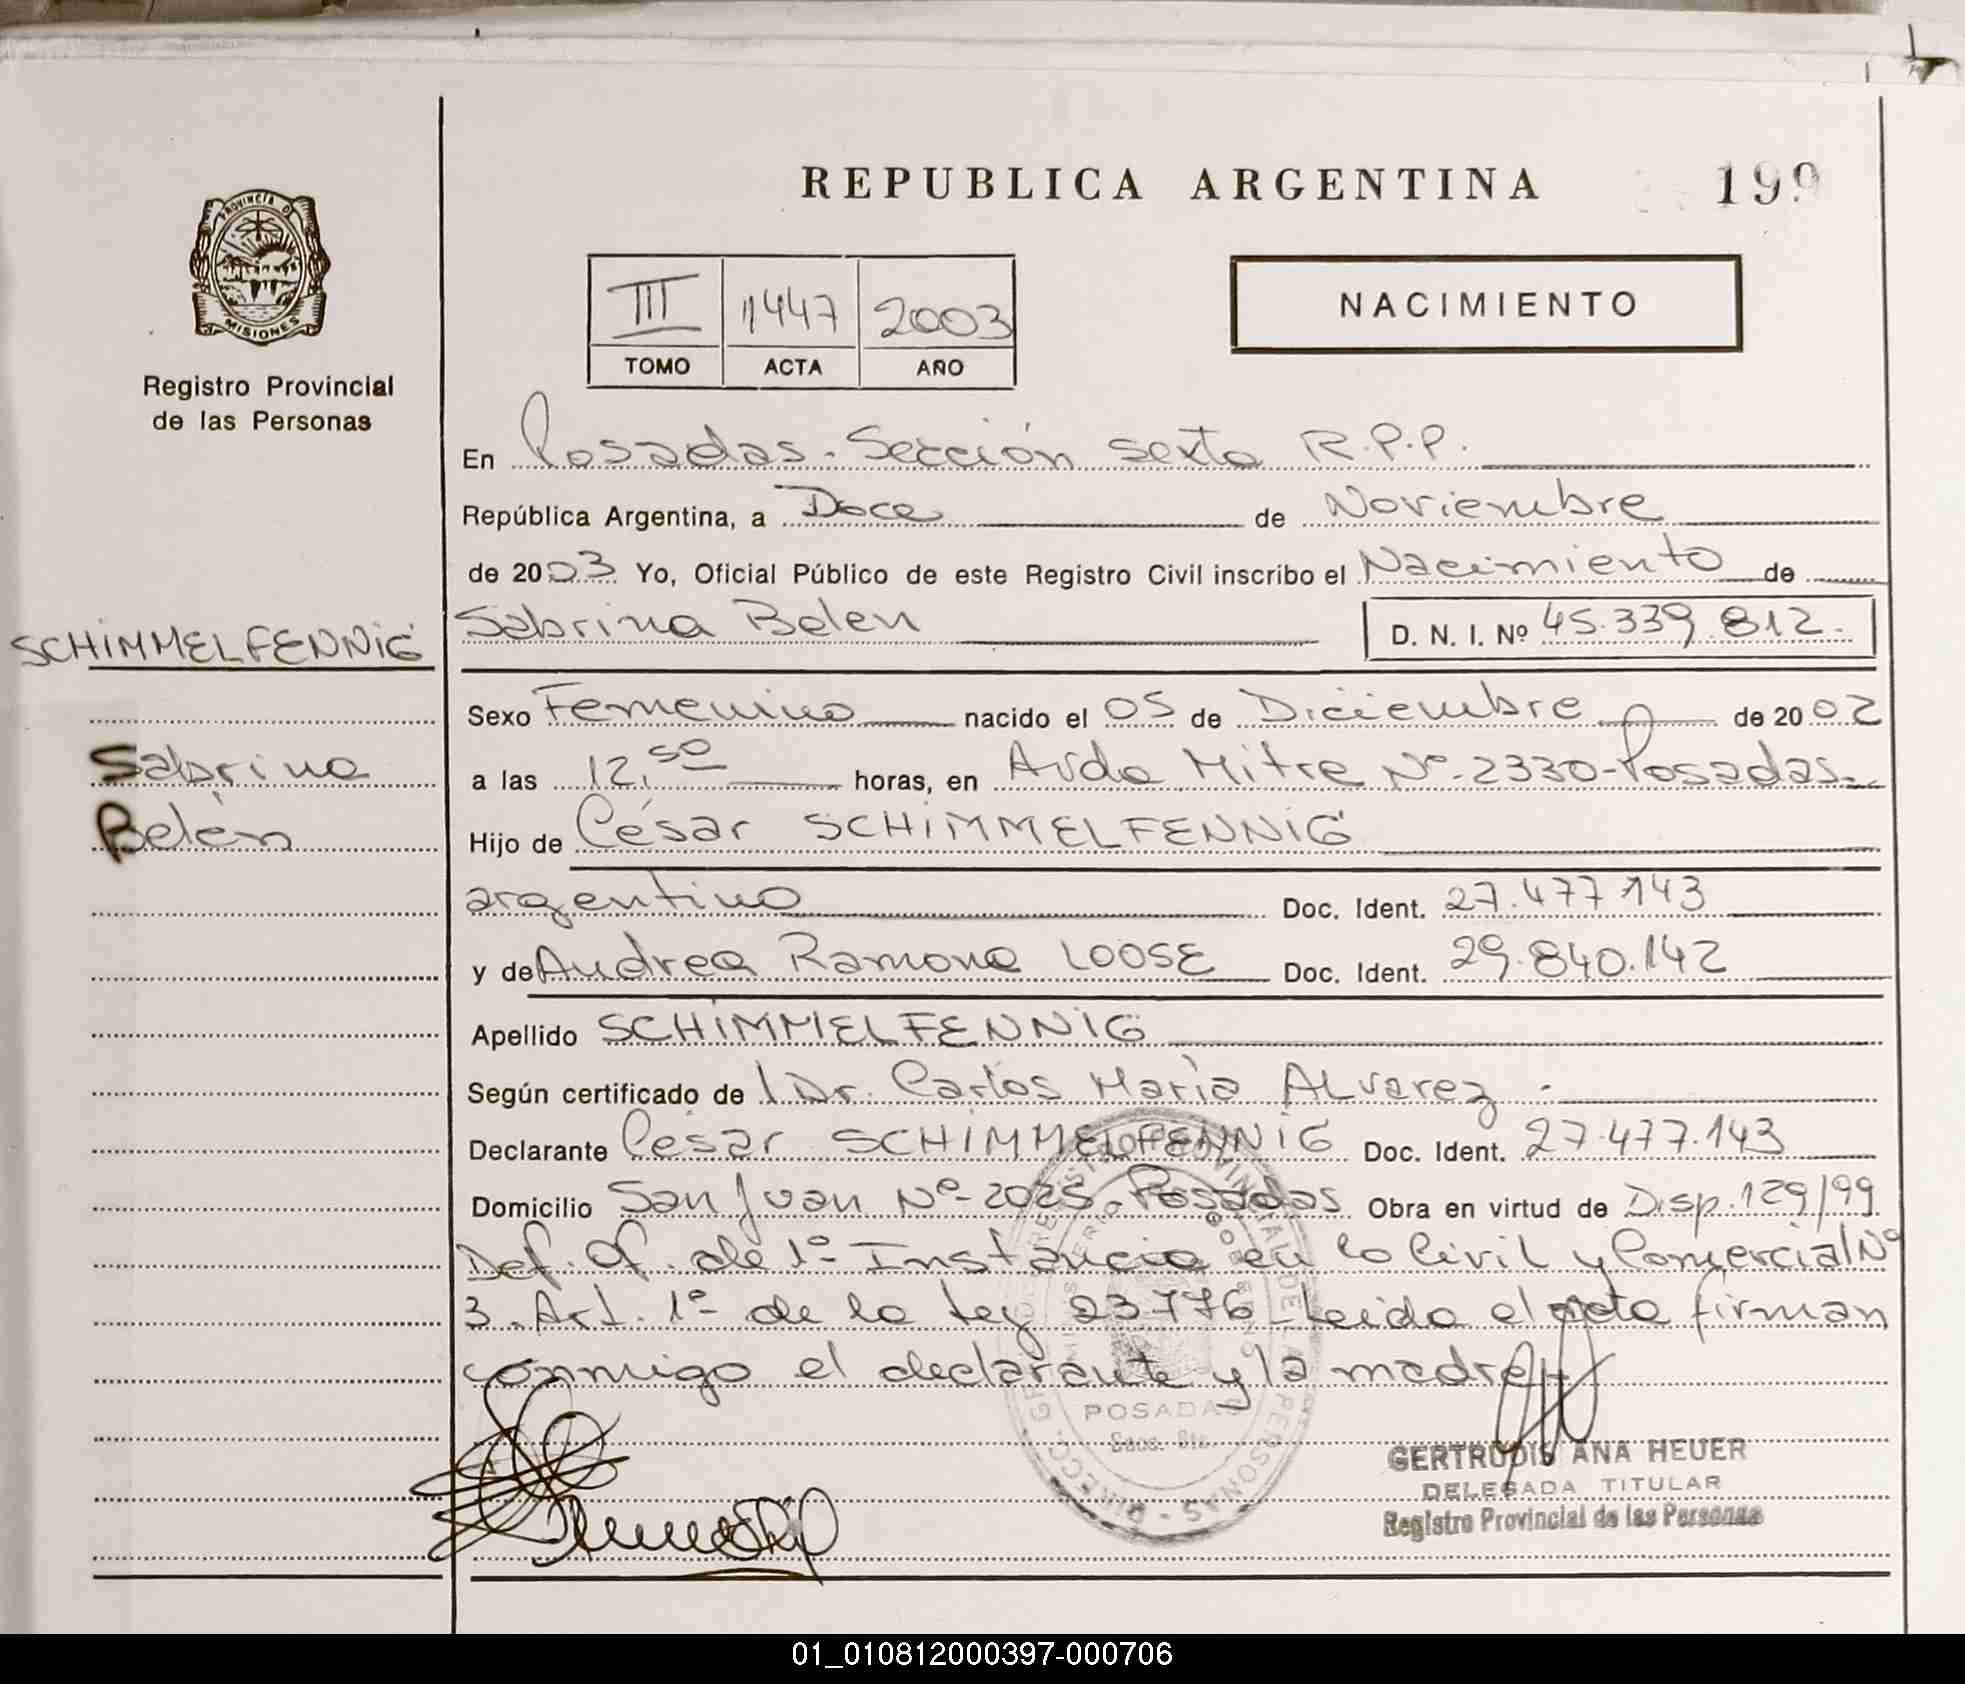 REPUBLICA ARGENTINA
199
PROVINCIA DE
MISIONES
Registro Provincial
de las Personas
III 1447 2003
TOMO ACTA AÑO
NACIMIENTO
En Posadas. Sección sexta R.P.P.
República Argentina, a Doce de Noviembre
de 2003 Yo, Oficial Público de este Registro Civil inscribo el Nacimiento de
SCHIMMELFENNIG
Sabrina Belen D. N. I. Nº 45.339.812.
Sexo Femenino nacido el 05 de Diciembre de 2002
Sabrina
a las 12,50 horas, en Avda Mitre Nº-2330-Posadas.-
Belén
Hijo de César SCHIMMELFENNIG
argentino Doc. Ident. 27.477.143
y de Andrea Ramona LOOSE Doc. Ident. 29.840.142
Apellido SCHIMMELFENNIG
Según certificado de l Dr. Carlos María Alvarez.-
Declarante César SCHIMMELFENNIG Doc. Ident. 27.477.143
Domicilio San Juan Nº-2025. Posadas Obra en virtud de Disp. 129/99
Def. Of. de 1º Instancia en lo Civil y Comercial Nº
3. Art. 1º de la Ley 23.776- Leido el acta firman
conmigo el declarante y la madre.-
POSADAS
Secc. 6ta.
GERTRUDIS ANA HEUER
DELEGADA TITULAR
Registro Provincial de las Personas
01_010812000397-000706